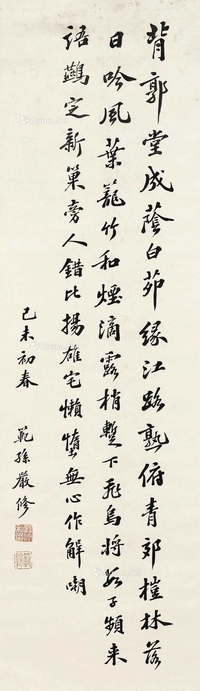 背郭堂成蔭白茆緣江路熟俯青郊榿林落
日吟風葉籠竹和煙滴露梢蹔下飛烏將數子頻來
語鷰定新巢旁人錯比揚雄宅懶惰無心作解嘲
己未初春
範孫嚴修